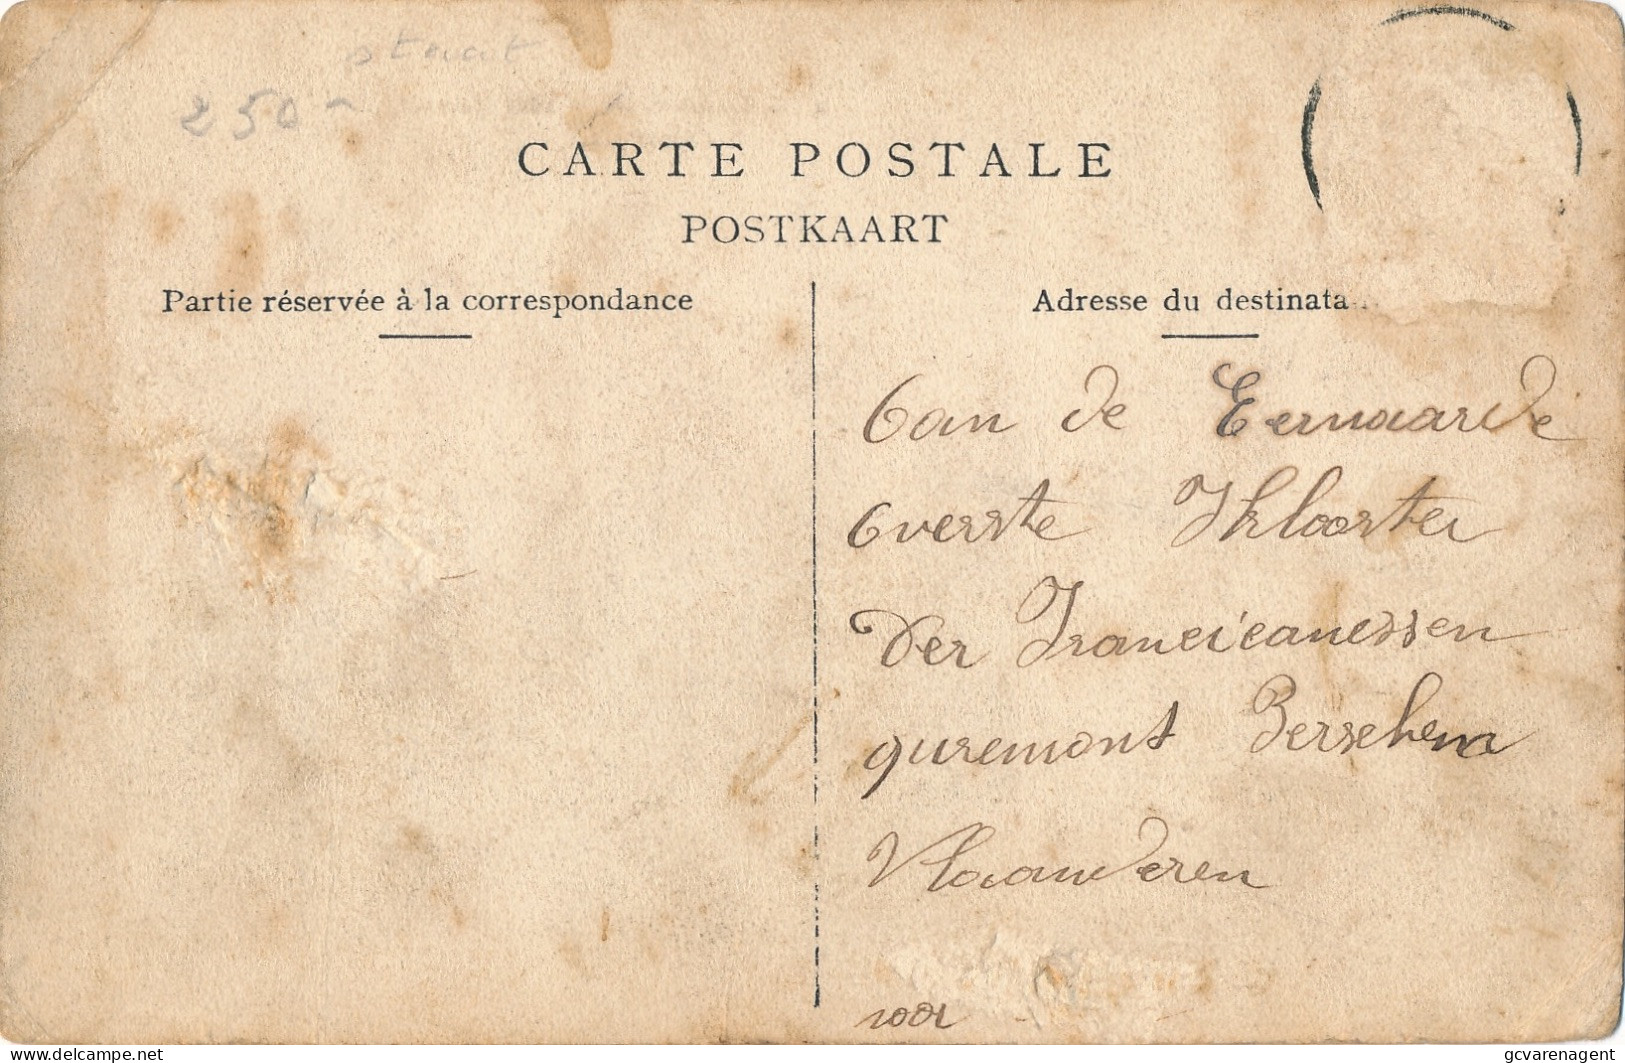 250-
CARTE POSTALE
POSTKAART
Partie réservée à la correspondance
Adresse du destinata
Aan de Eerwaarde
Overste Kklooster
Der Francicanessen
quremont Berschem
Vlaanderen
delcampe.net
gcvarenagent